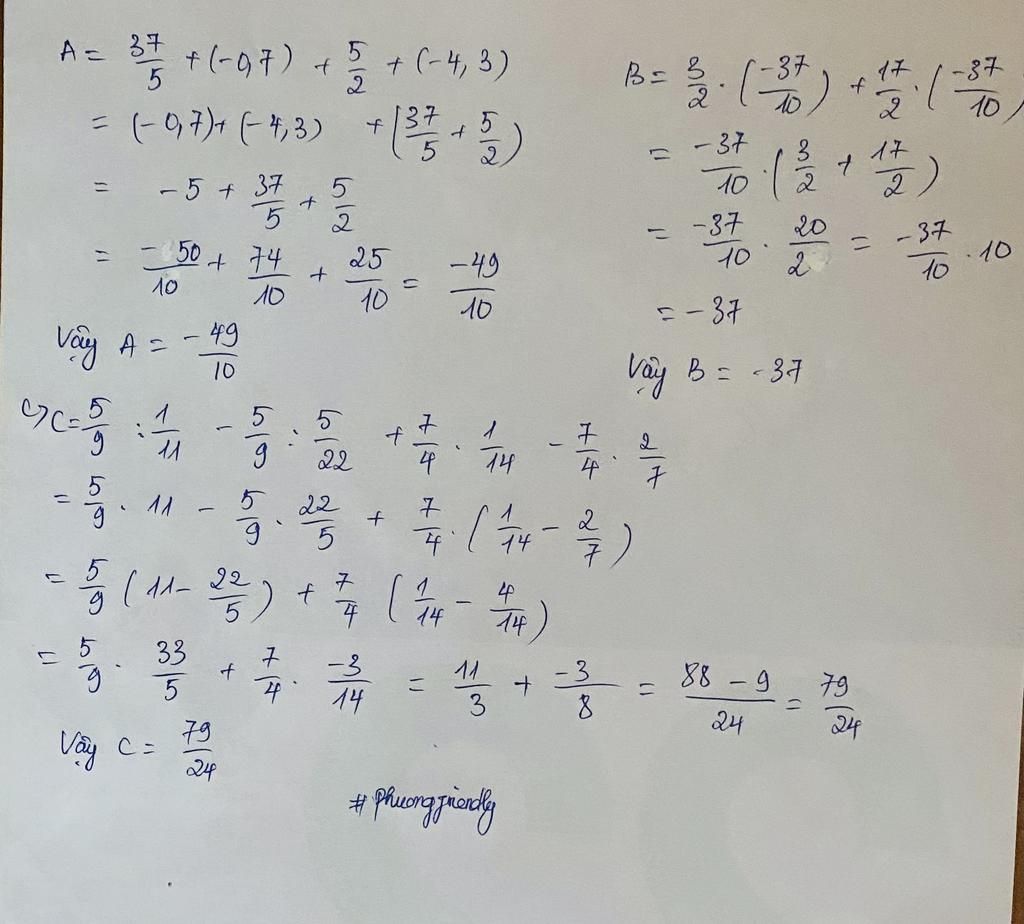 A = 37/5 + (-0,7) + 5/2 + (-4,3)
= (-0,7) + (-4,3) + (37/5 + 5/2)
= -5 + 37/5 + 5/2
= -50/10 + 74/10 + 25/10 = -49/10
Vậy A = -49/10
B = 3/2 . (-37/10) + 17/2 . (-37/10)
= -37/10 . (3/2 + 17/2)
= -37/10 . 20/2 = -37/10 . 10
= -37
Vậy B = -37
C> C = 5/9 : 1/11 - 5/9 : 5/22 + 7/4 . 1/14 - 7/4 . 2/7
= 5/9 . 11 - 5/9 . 22/5 + 7/4 . (1/14 - 2/7)
= 5/9 (11 - 22/5) + 7/4 (1/14 - 4/14)
= 5/9 . 33/5 + 7/4 . -3/14 = 11/3 + -3/8 = 88 - 9/24 = 79/24
Vậy C = 79/24
# phuongfriendly